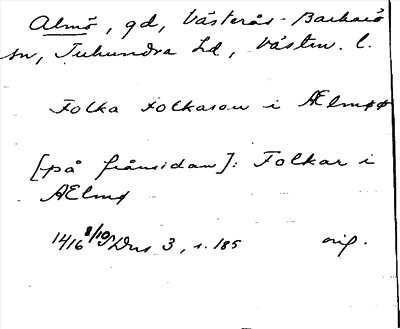 Almö, gd, Västerås-Barkarö
sn, Tuhundra hd, Västm. l.
Folka Folkason i Ælmøø
[på frånsidan]: Folkar i
Ælmø
1416 8/10 Dns 3, s. 185 orig.